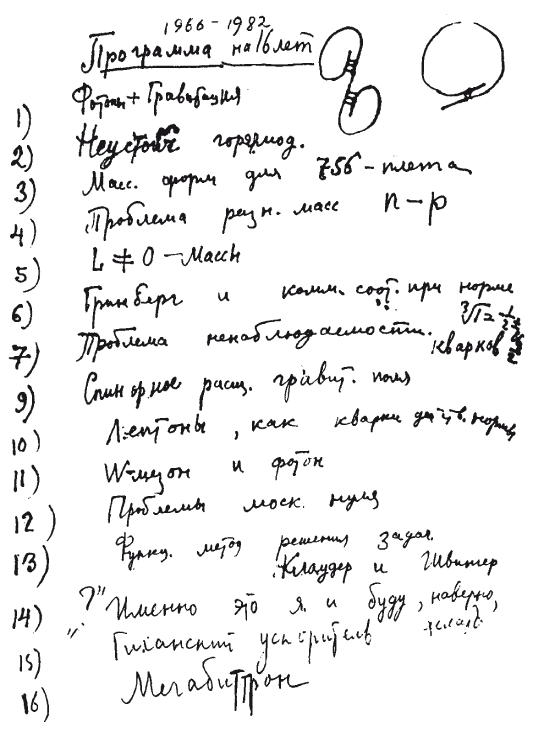 1966-1982
Программа на 16 лет
1) Фотоны + Гравитация
2) Неустойч горяд.
3) Масс. форм для 756-плета
4) Проблема разн. масс n-p
5) L ≠ 0 - массы
6) Гринберг и комм. соот. при норме
7) Проблема ненаблюдаемости. кварков
9) Спинорное расщ. гравит. поля
10) Лептоны, как кварки норм
11) W-мезон и фотон
12) Проблемы моск. нуля
13) Функц. метод решения задач.
Клаудер и Швингер
14) ?" Именно это я и буду, наверно,
" делать
15) Гиханский ускоритель
16) Мегабиттрон